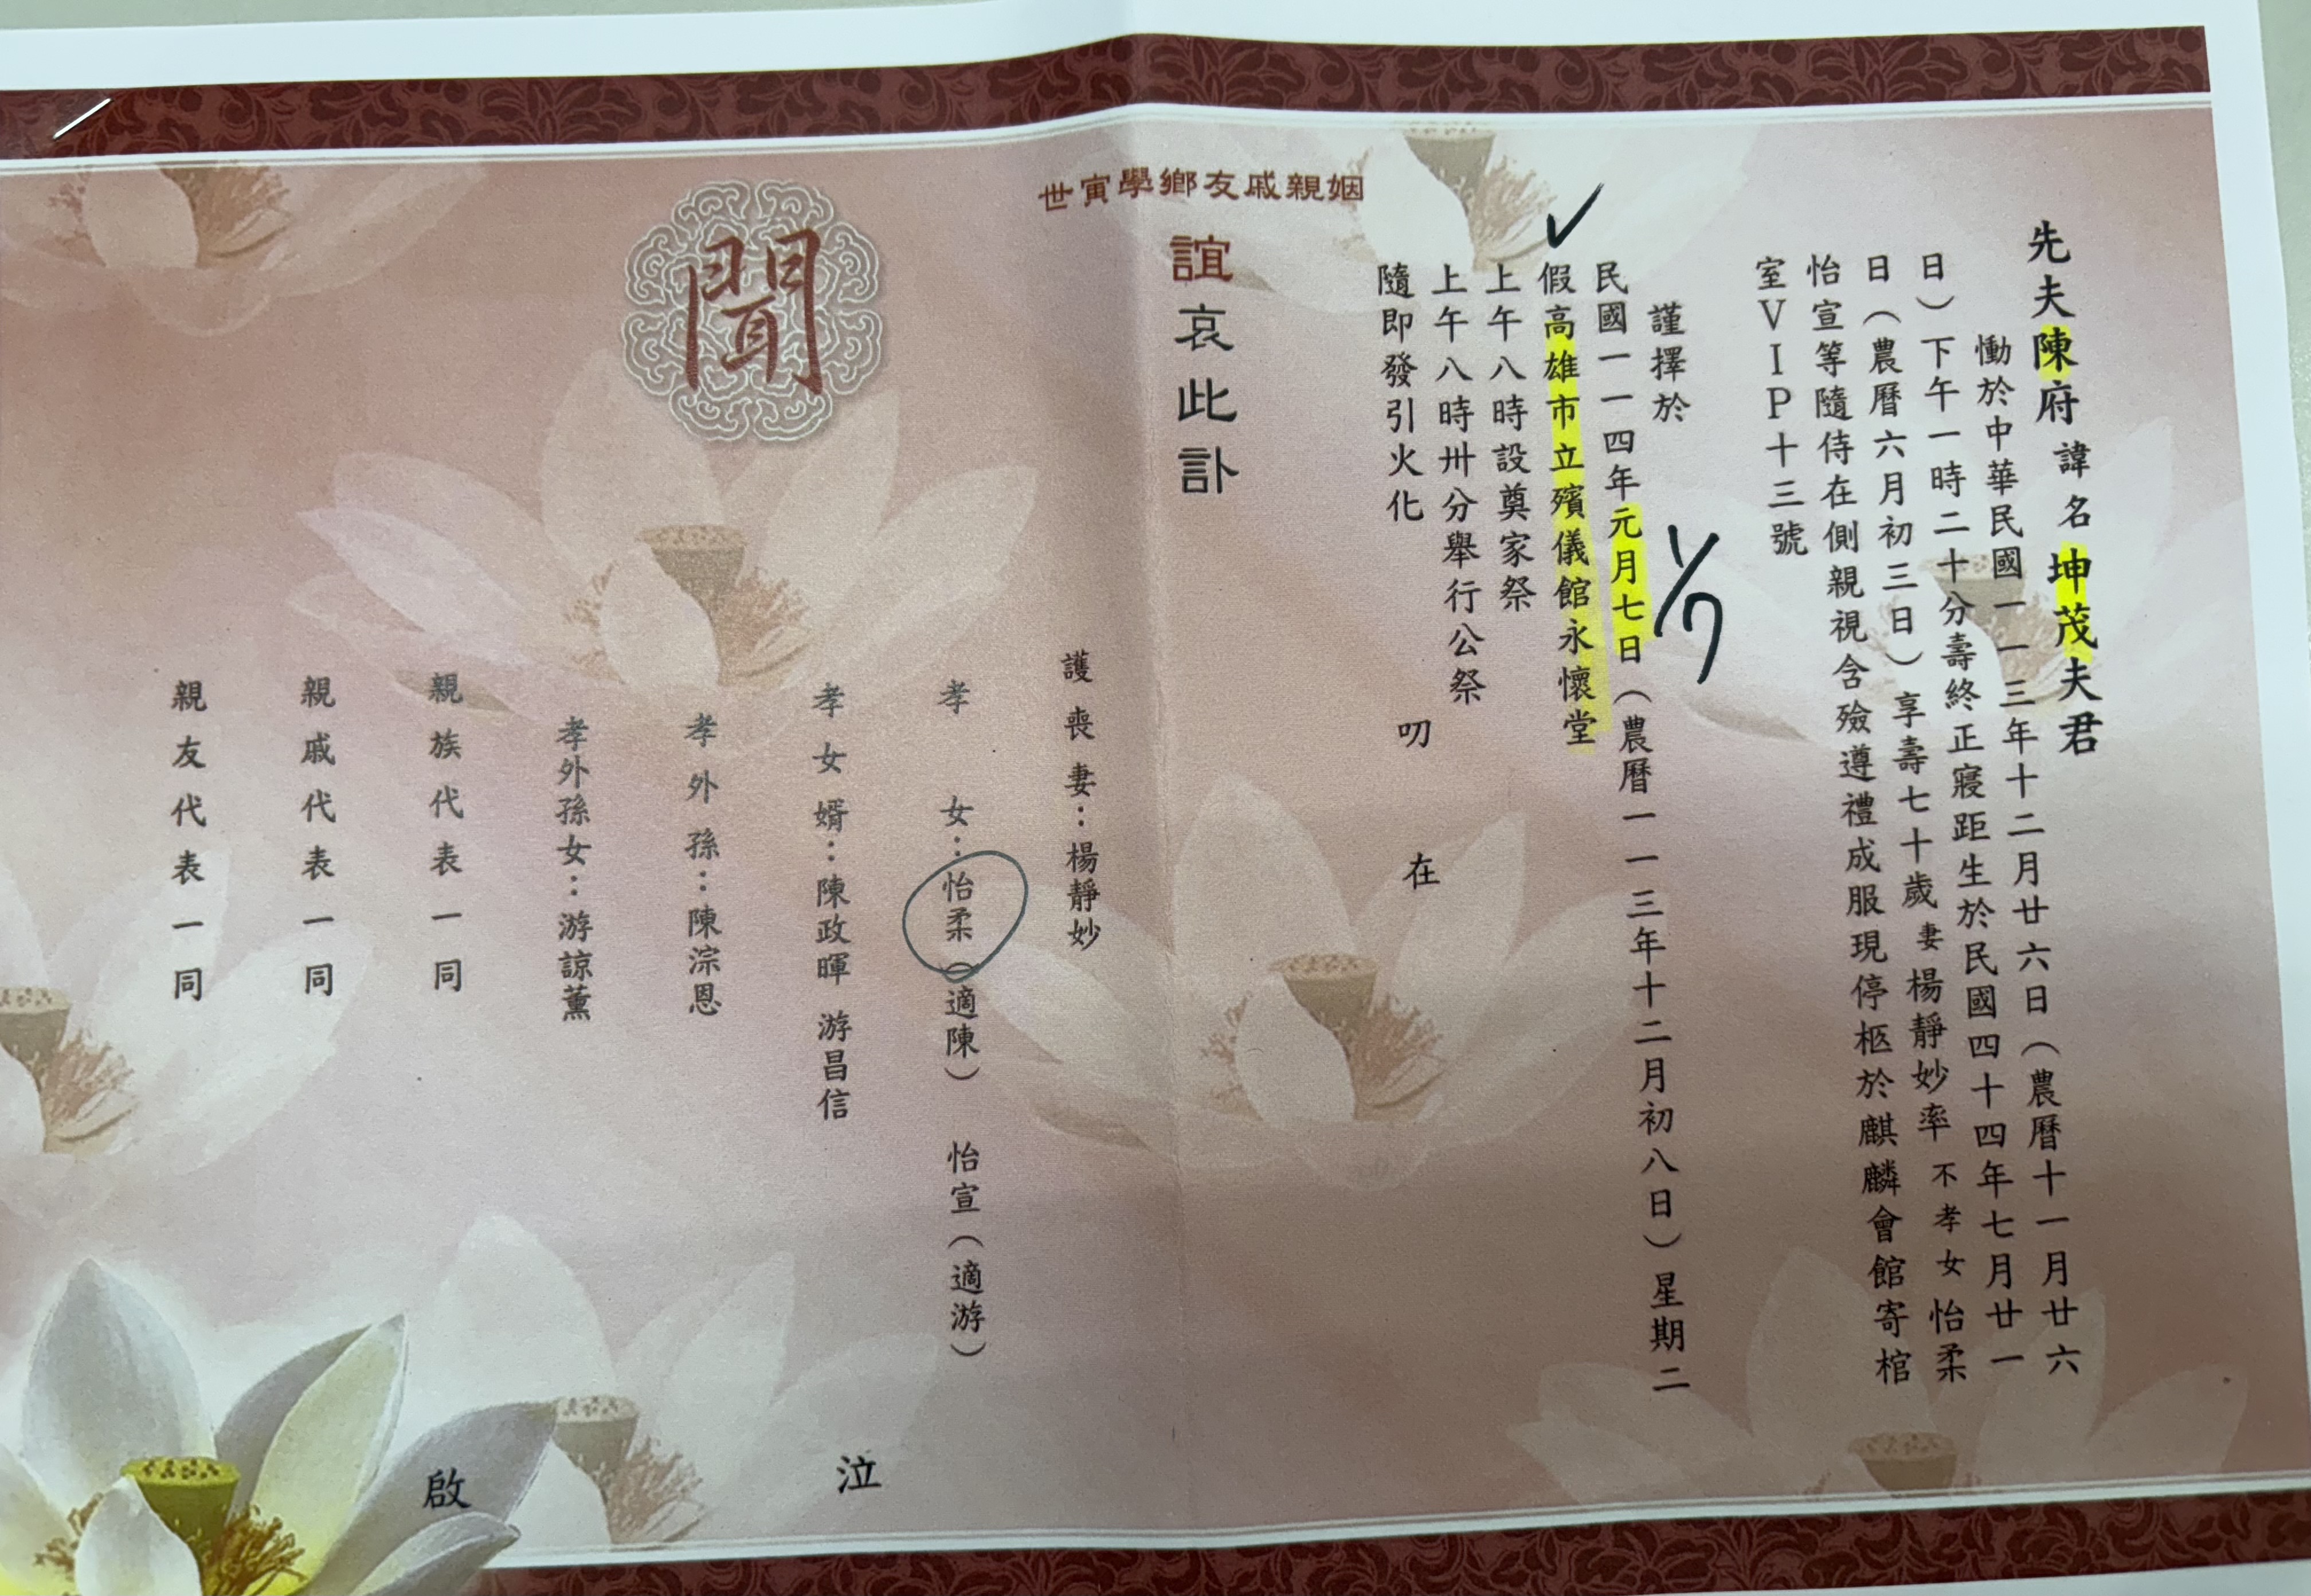 先夫陳府諱名坤茂夫君
慟於中華民國一一三年十二月廿六日（農曆十一月廿六
日）下午一時二十分壽終正寢距生於民國四十四年七月廿一
日（農曆六月初三日）享壽七十歲妻楊靜妙率不孝女怡柔
怡宣等隨侍在側親視含殮遵禮成服現停柩於麒麟會館寄棺
室VIP十三號
謹擇於
1/7
民國一一四年元月七日（農曆一一三年十二月初八日）星期二
假高雄市立殯儀館永懷堂
上午八時設奠家祭
上午八時卅分舉行公祭
隨即發引火化
叨在
姻親戚友鄉學寅世
誼哀此訃
聞
護喪妻：楊靜妙
孝女：怡柔（適陳） 怡宣（適游）
孝女婿：陳政暉 游昌信
孝外孫：陳淙恩
孝外孫女：游諒薰
親族代表一同
親戚代表一同
親友代表一同
泣
啟